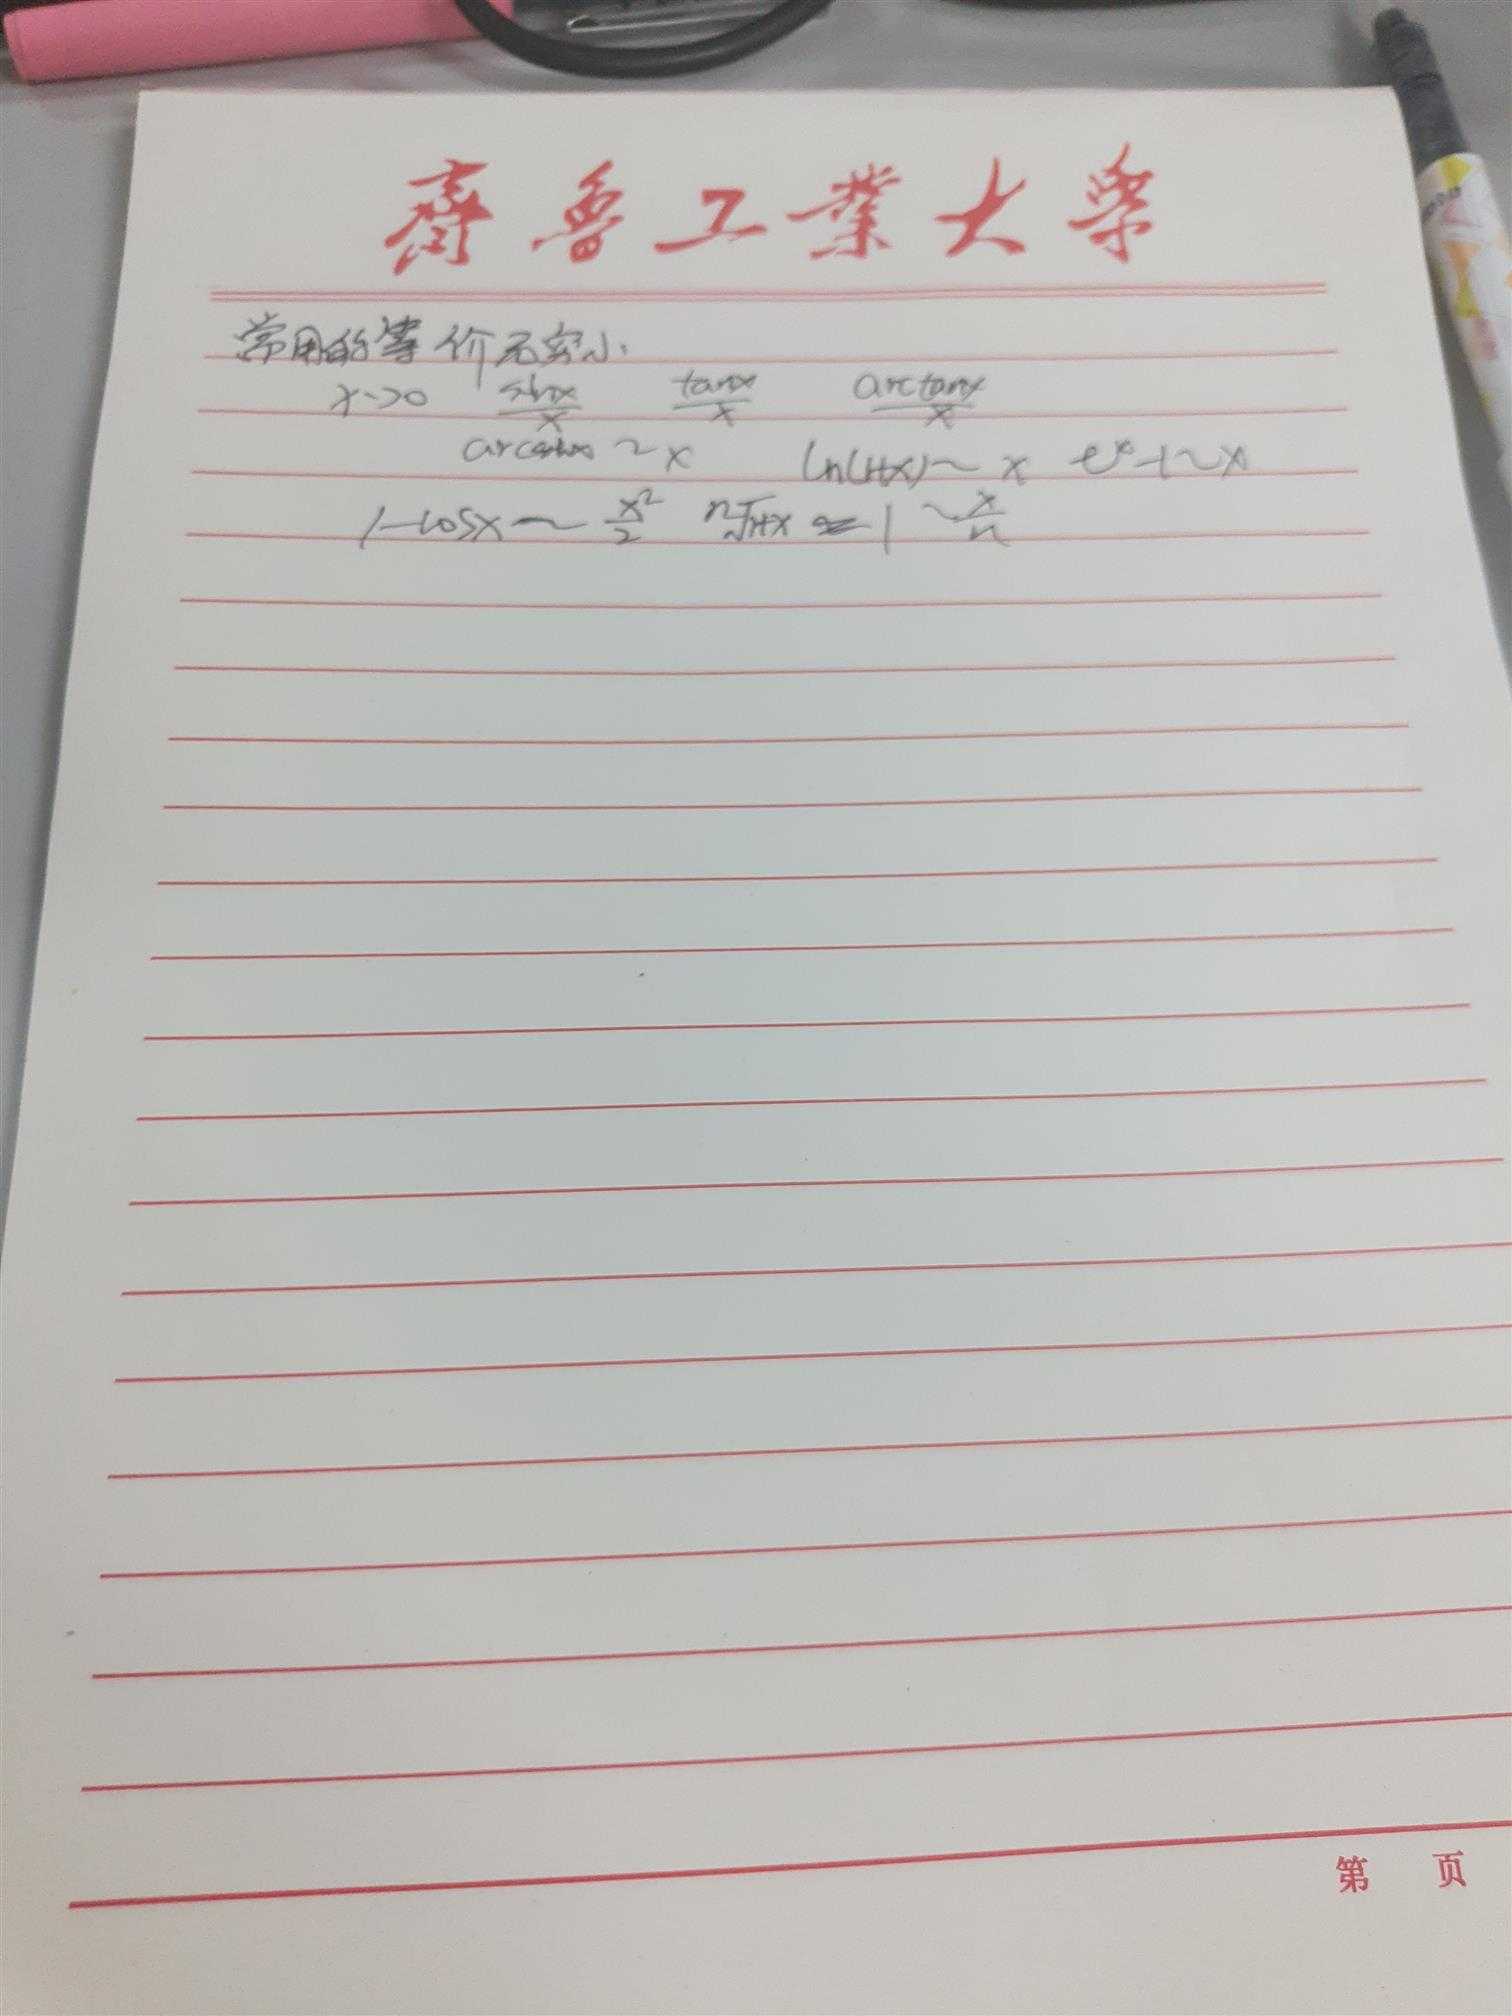 齊魯工業大學
常用的等价无穷小
x->0 sinx/x tanx/x arctanx/x
arcsinx ~ x ln(1+x) ~ x e^x-1~x
1-cosx ~ x²/2 ⁿ√1+x - 1 ~ x/n
第 页